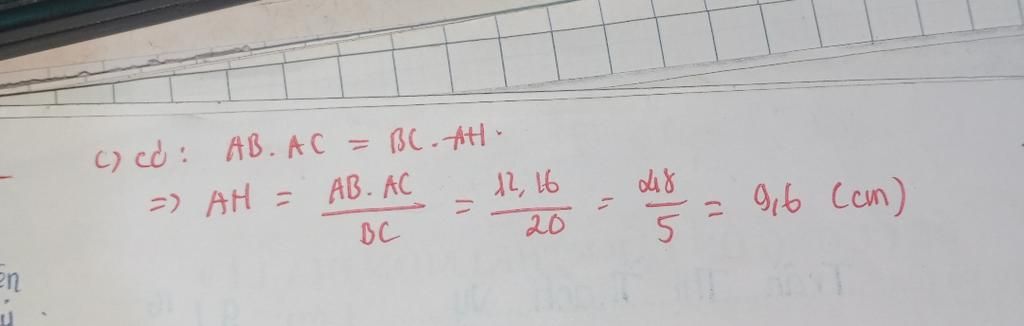 c) có: AB. AC = BC. AH.
=> AH = AB. AC / BC = 12, 16 / 20 = 48 / 5 = 9,6 (cm)
ên